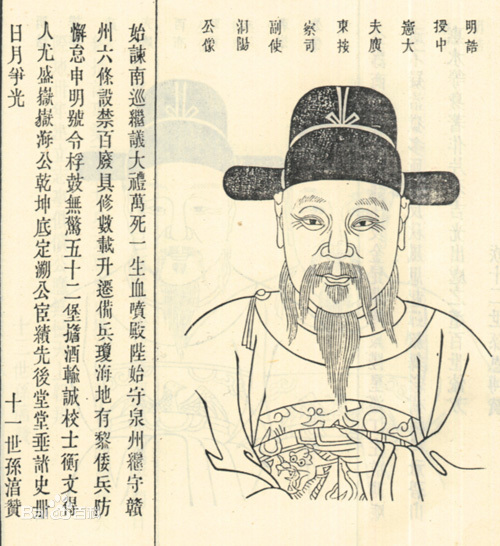 明誥
授中
憲大
夫廣
東按
察司
副使
洞陽
公像
始諫南巡繼議大禮萬死一生血噴殿陛始守泉州繼守贛
州六條設禁百廢具修數載升遷備兵瓊海地有黎倭兵防
懈怠申明號令桴鼓無驚五十二堡擔酒輸誠校士衡文得
人尤盛嶽嶽海公乾坤底定溯公宦績先後堂堂垂諸史冊
日月爭光 十一世孫湻贊
Baidu百科